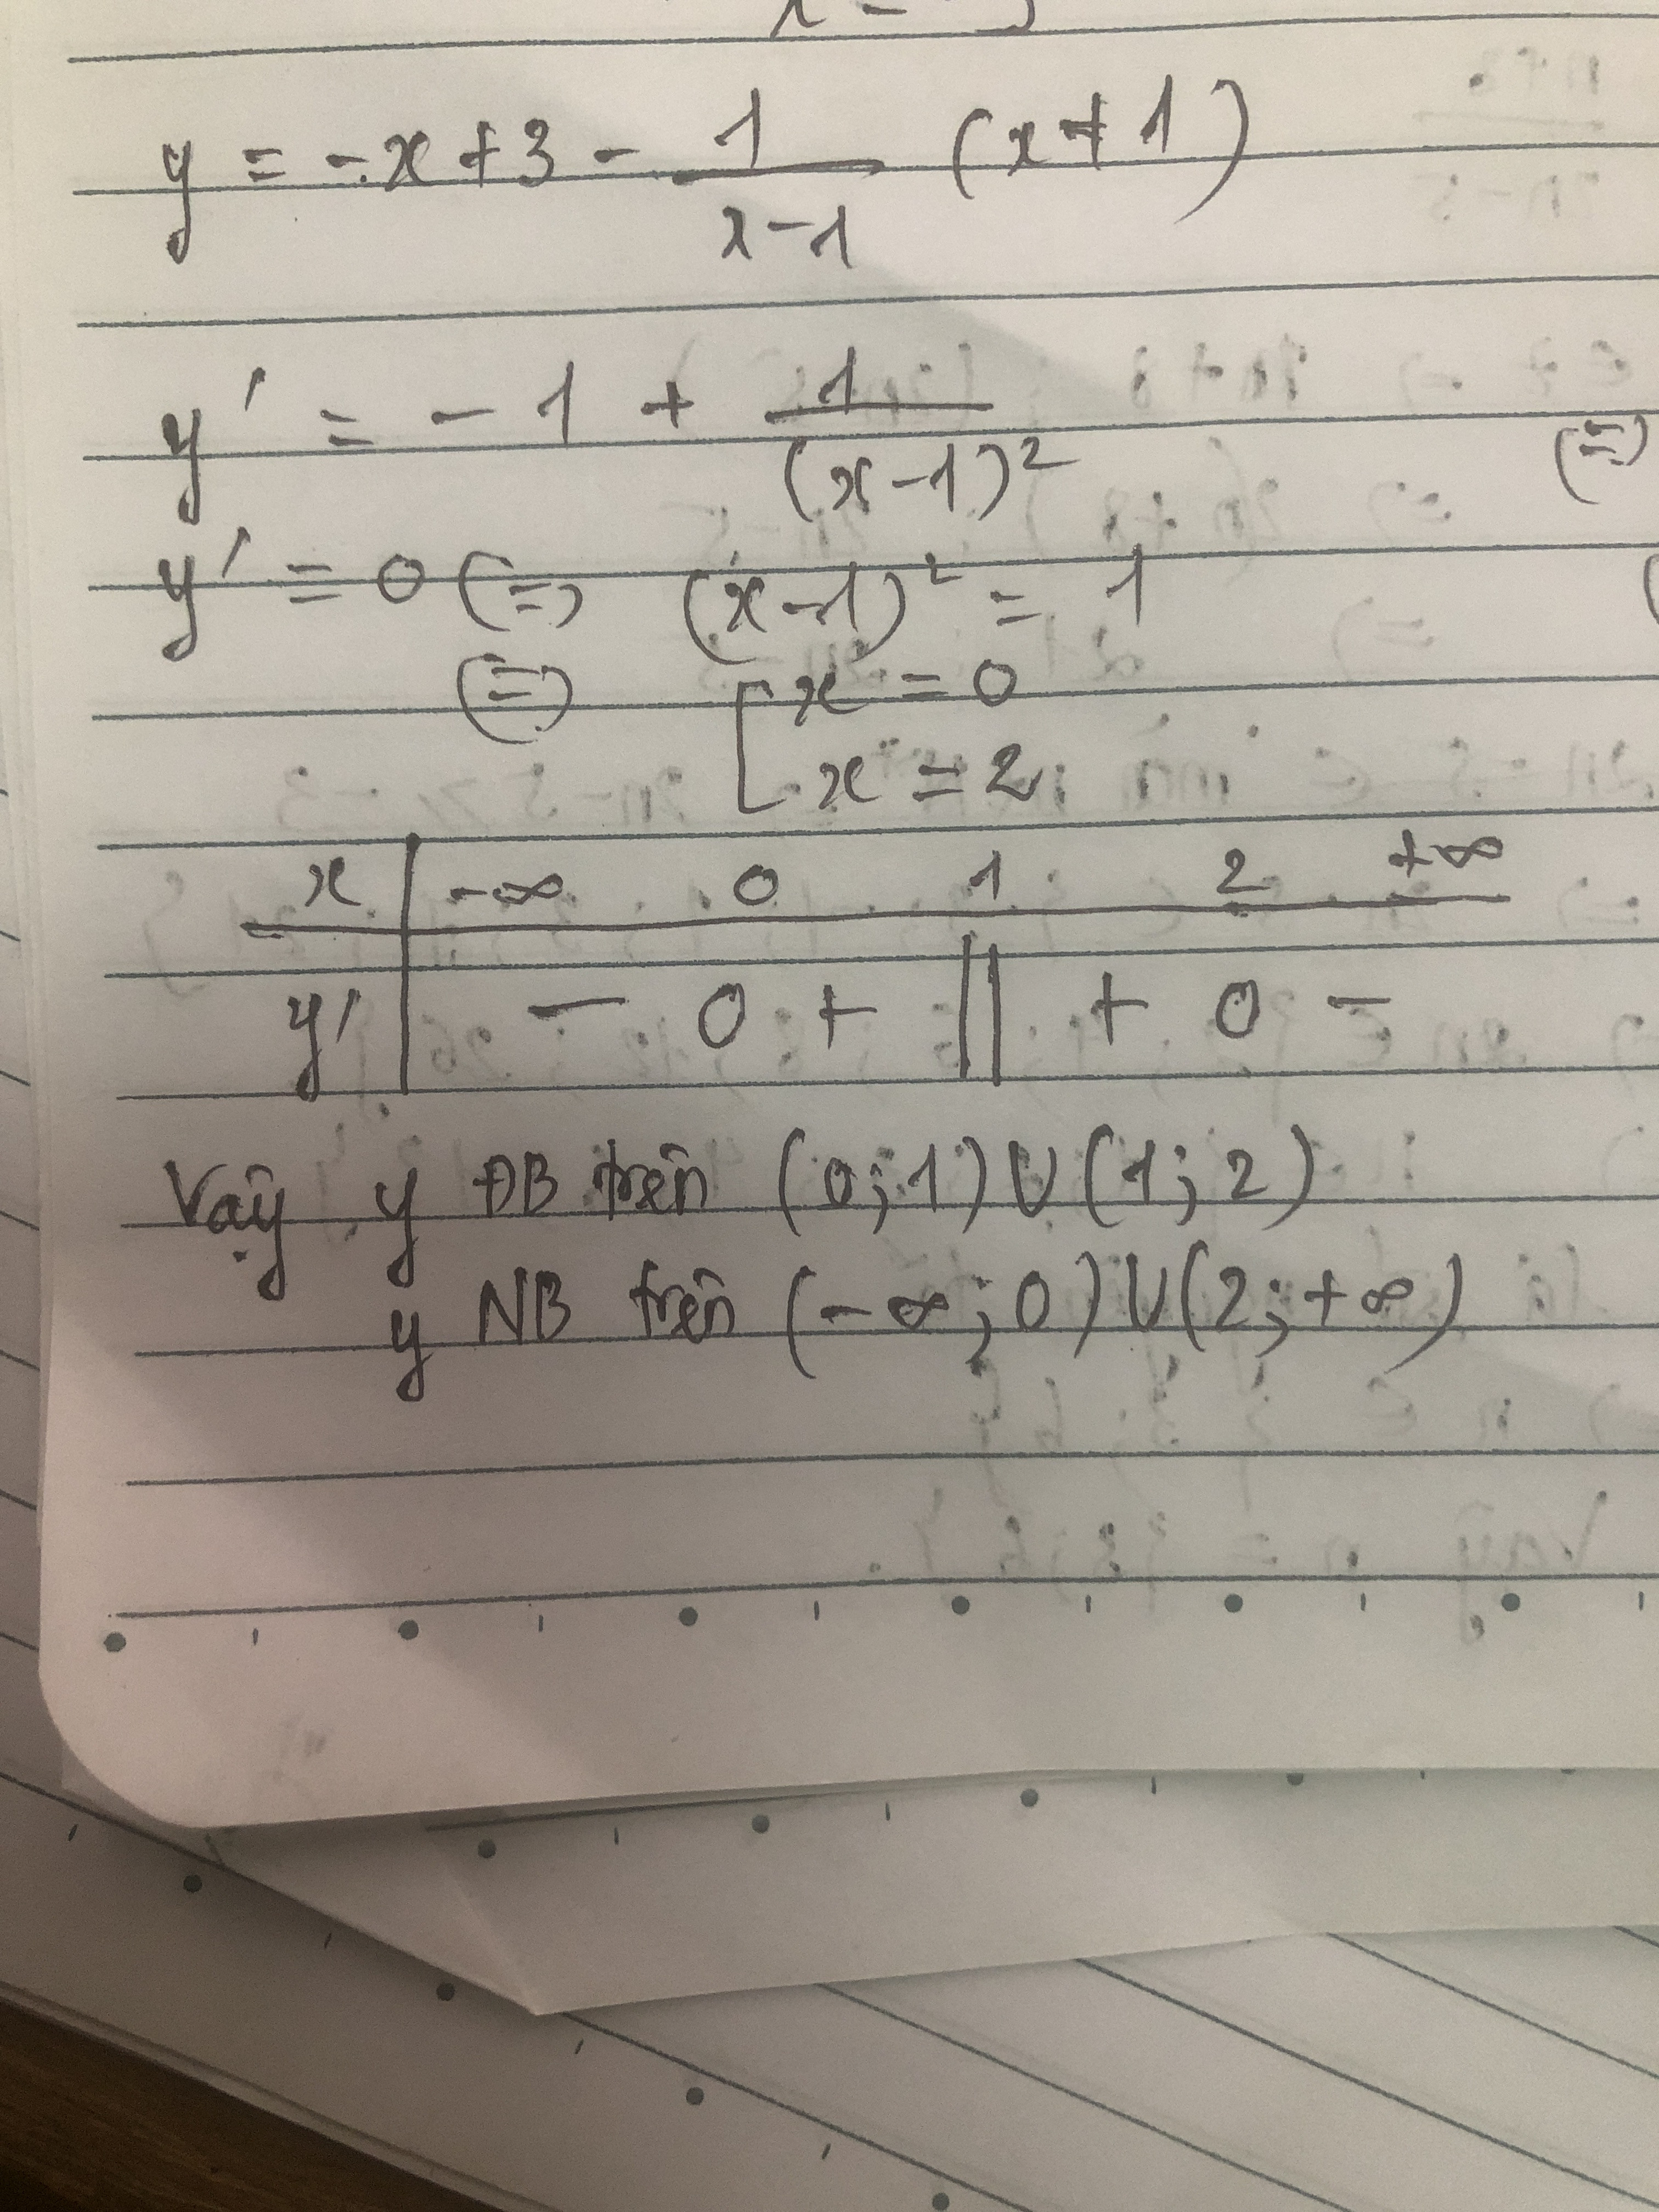 y = -x + 3 - 1/(x-1) (x ≠ 1)
y' = -1 + 1/(x-1)²
(=)
y' = 0 (=) (x-1)² = 1
(=) [ x = 0
x = 2
x | -∞ 0 1 2 +∞
y' | - 0 + || + 0 -
Vậy y ĐB trên (0;1) U (1;2)
y NB trên (-∞;0) U (2;+∞)